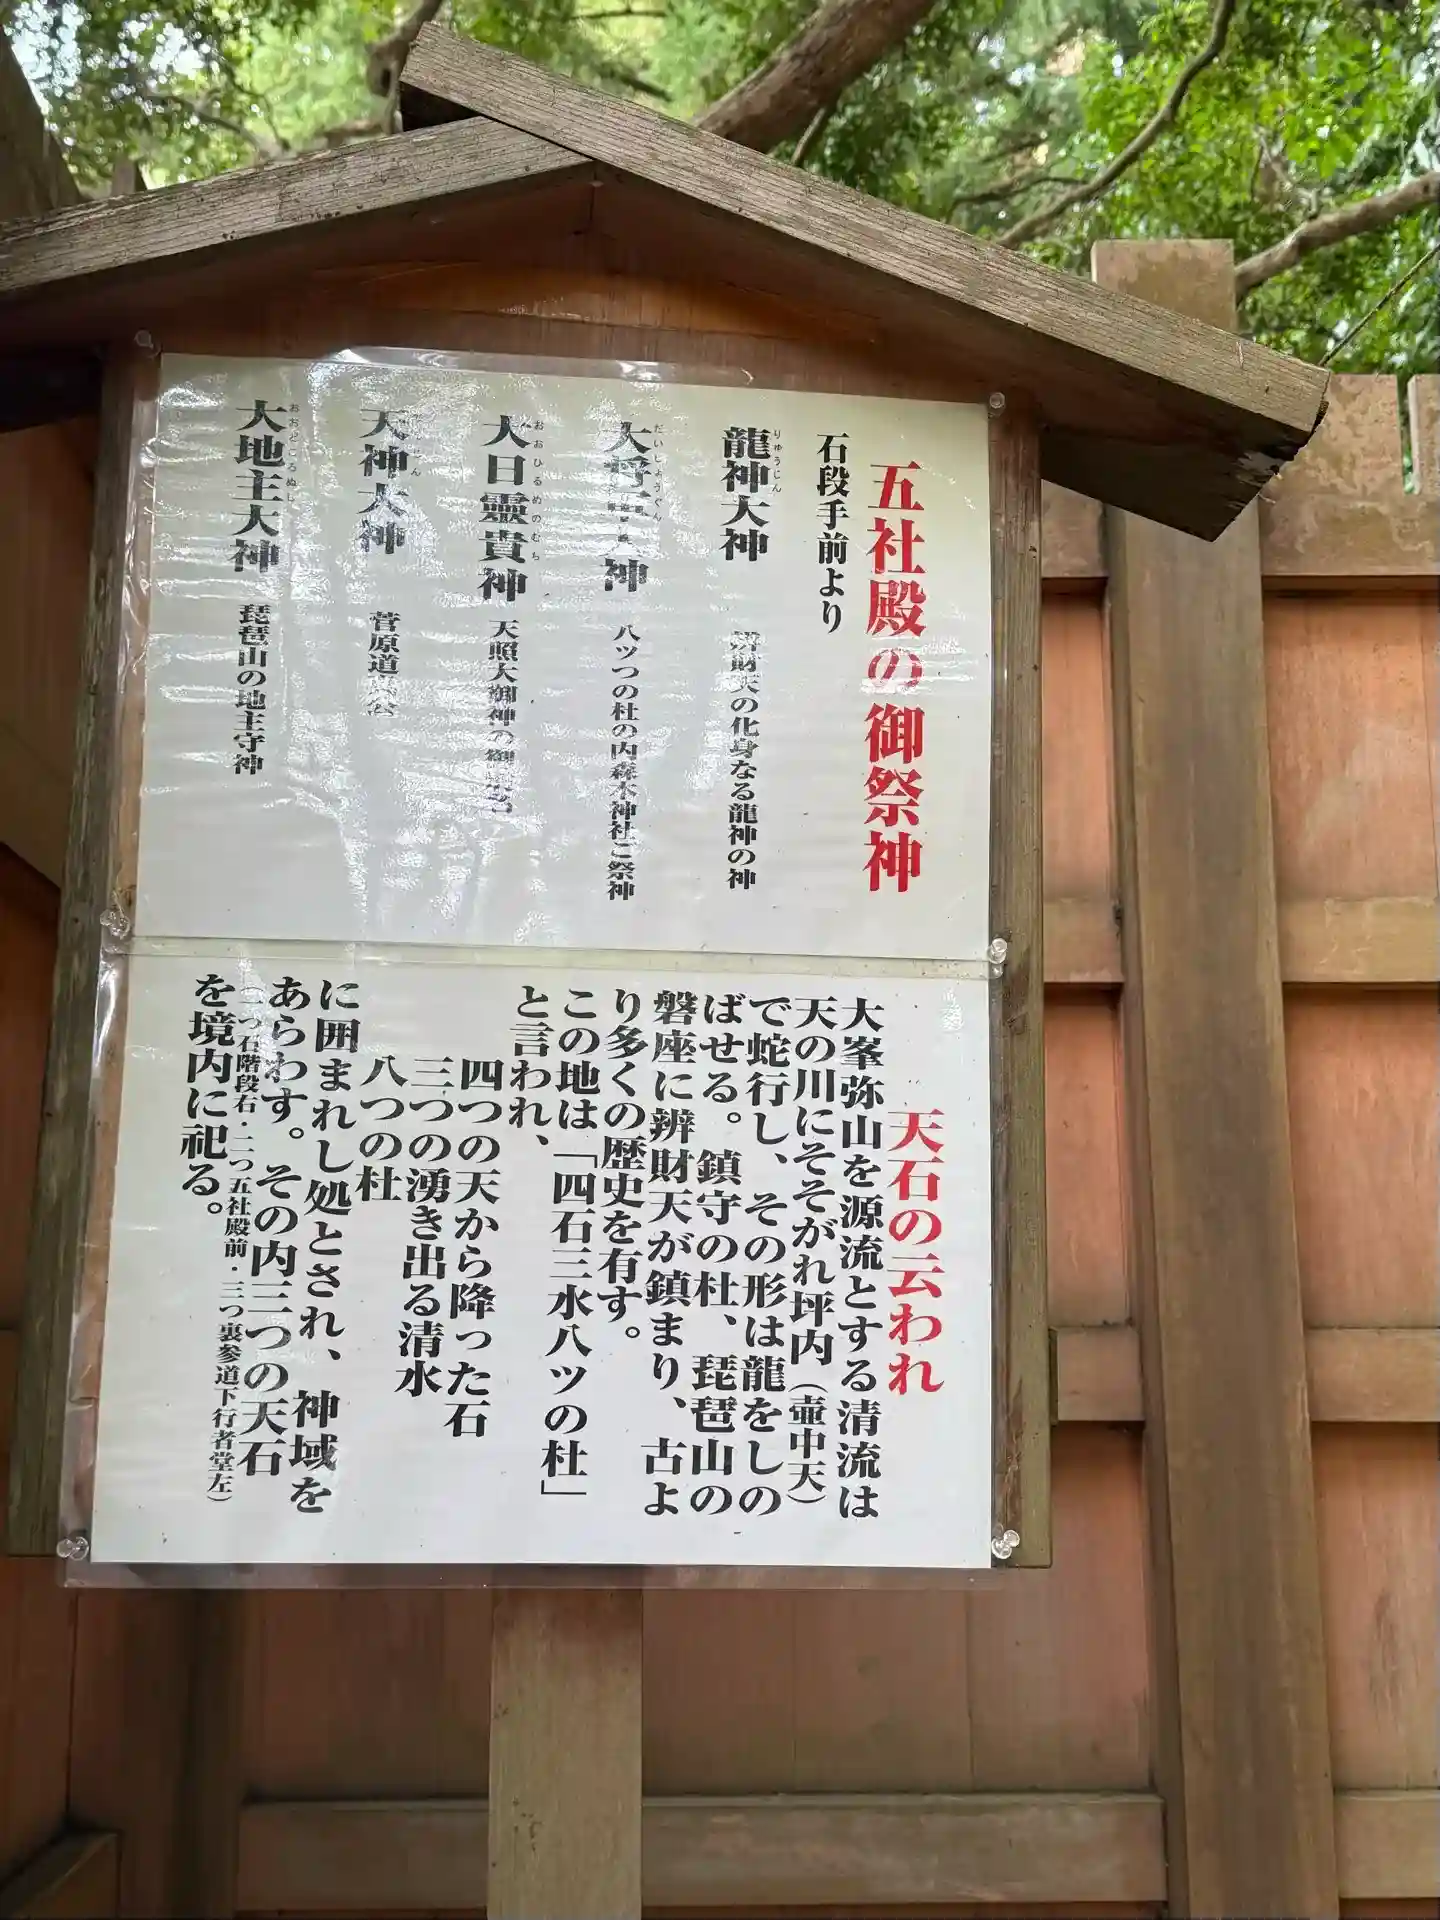 五社殿の御祭神
石段手前より
龍神大神 りゅうじん
財天の化身なる龍神の神
大将 神 だいしょうぐん
八ツつの杜の内森本神社ご祭神
大日靈貴神 おおひるめのむち
天照大御神の御
天神大神
菅原道
大地主大神 おおところぬし
琵琶山の地主守神
天石の云われ
大峯弥山を源流とする清流は
天の川にそそがれ坪内(壷中天)
で蛇行し、その形は龍をしの
ばせる。鎮守の杜、琵琶山の
磐座に辨財天が鎮まり、古よ
り多くの歴史を有す。
この地は「四石三水八ツの杜」
と言われ、
四つの天から降った石
三つの湧き出る清水
八つの杜
に囲まれし処とされ、神域を
あらわす。その内三つの天石
(一つ石階段右・二つ五社殿前・三つ裏参道下行者堂左)
を境内に祀る。